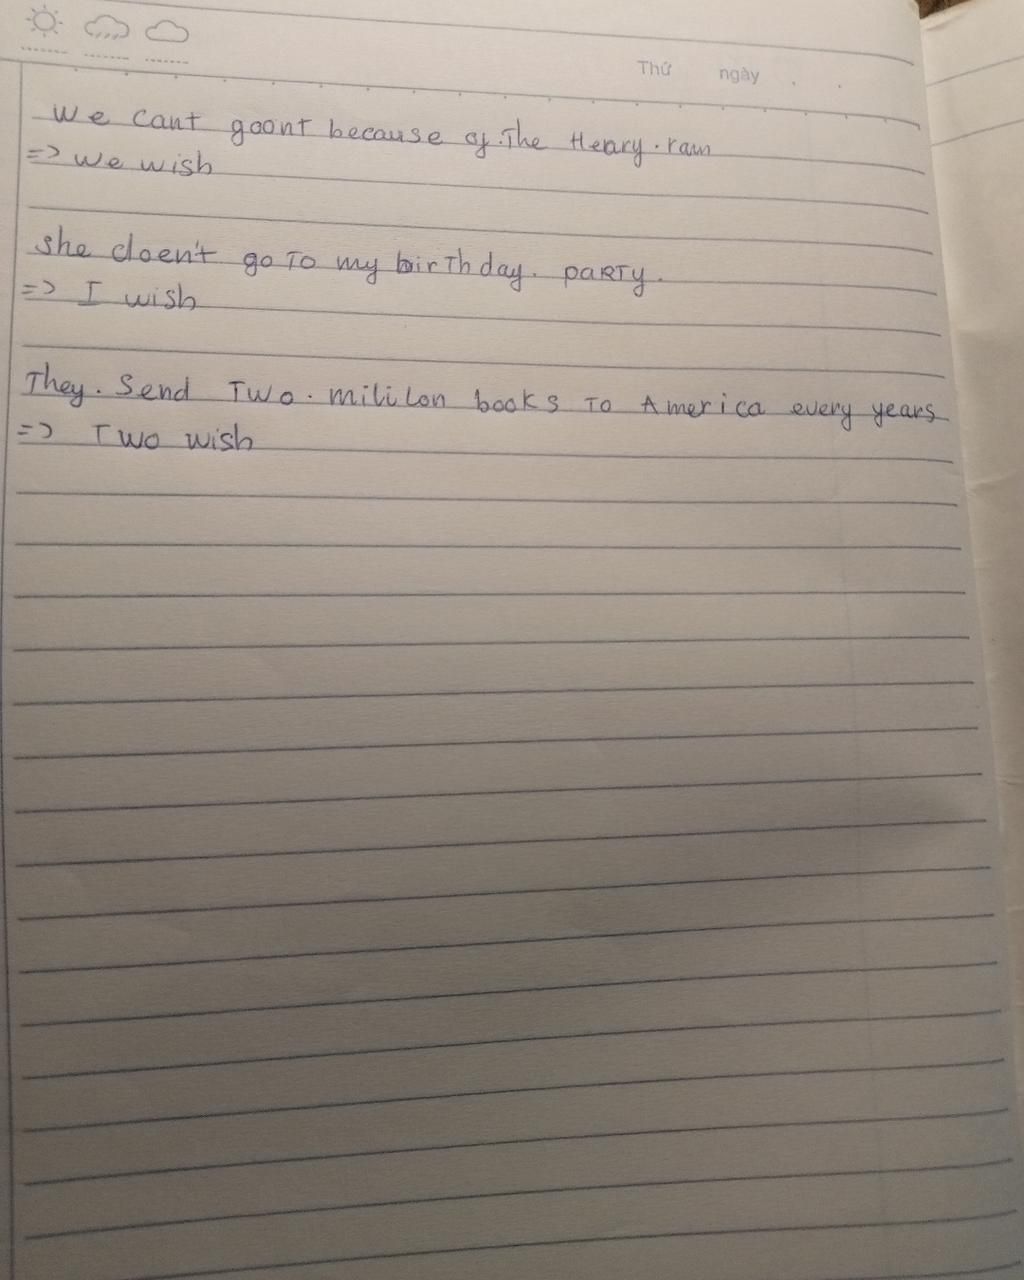 Thứ ngày
We cant goont because of The Heavy rain
=> We wish
She doen't go To my birThday party.
=> I wish
They Send Two mililon books To America every years
=> Two wish